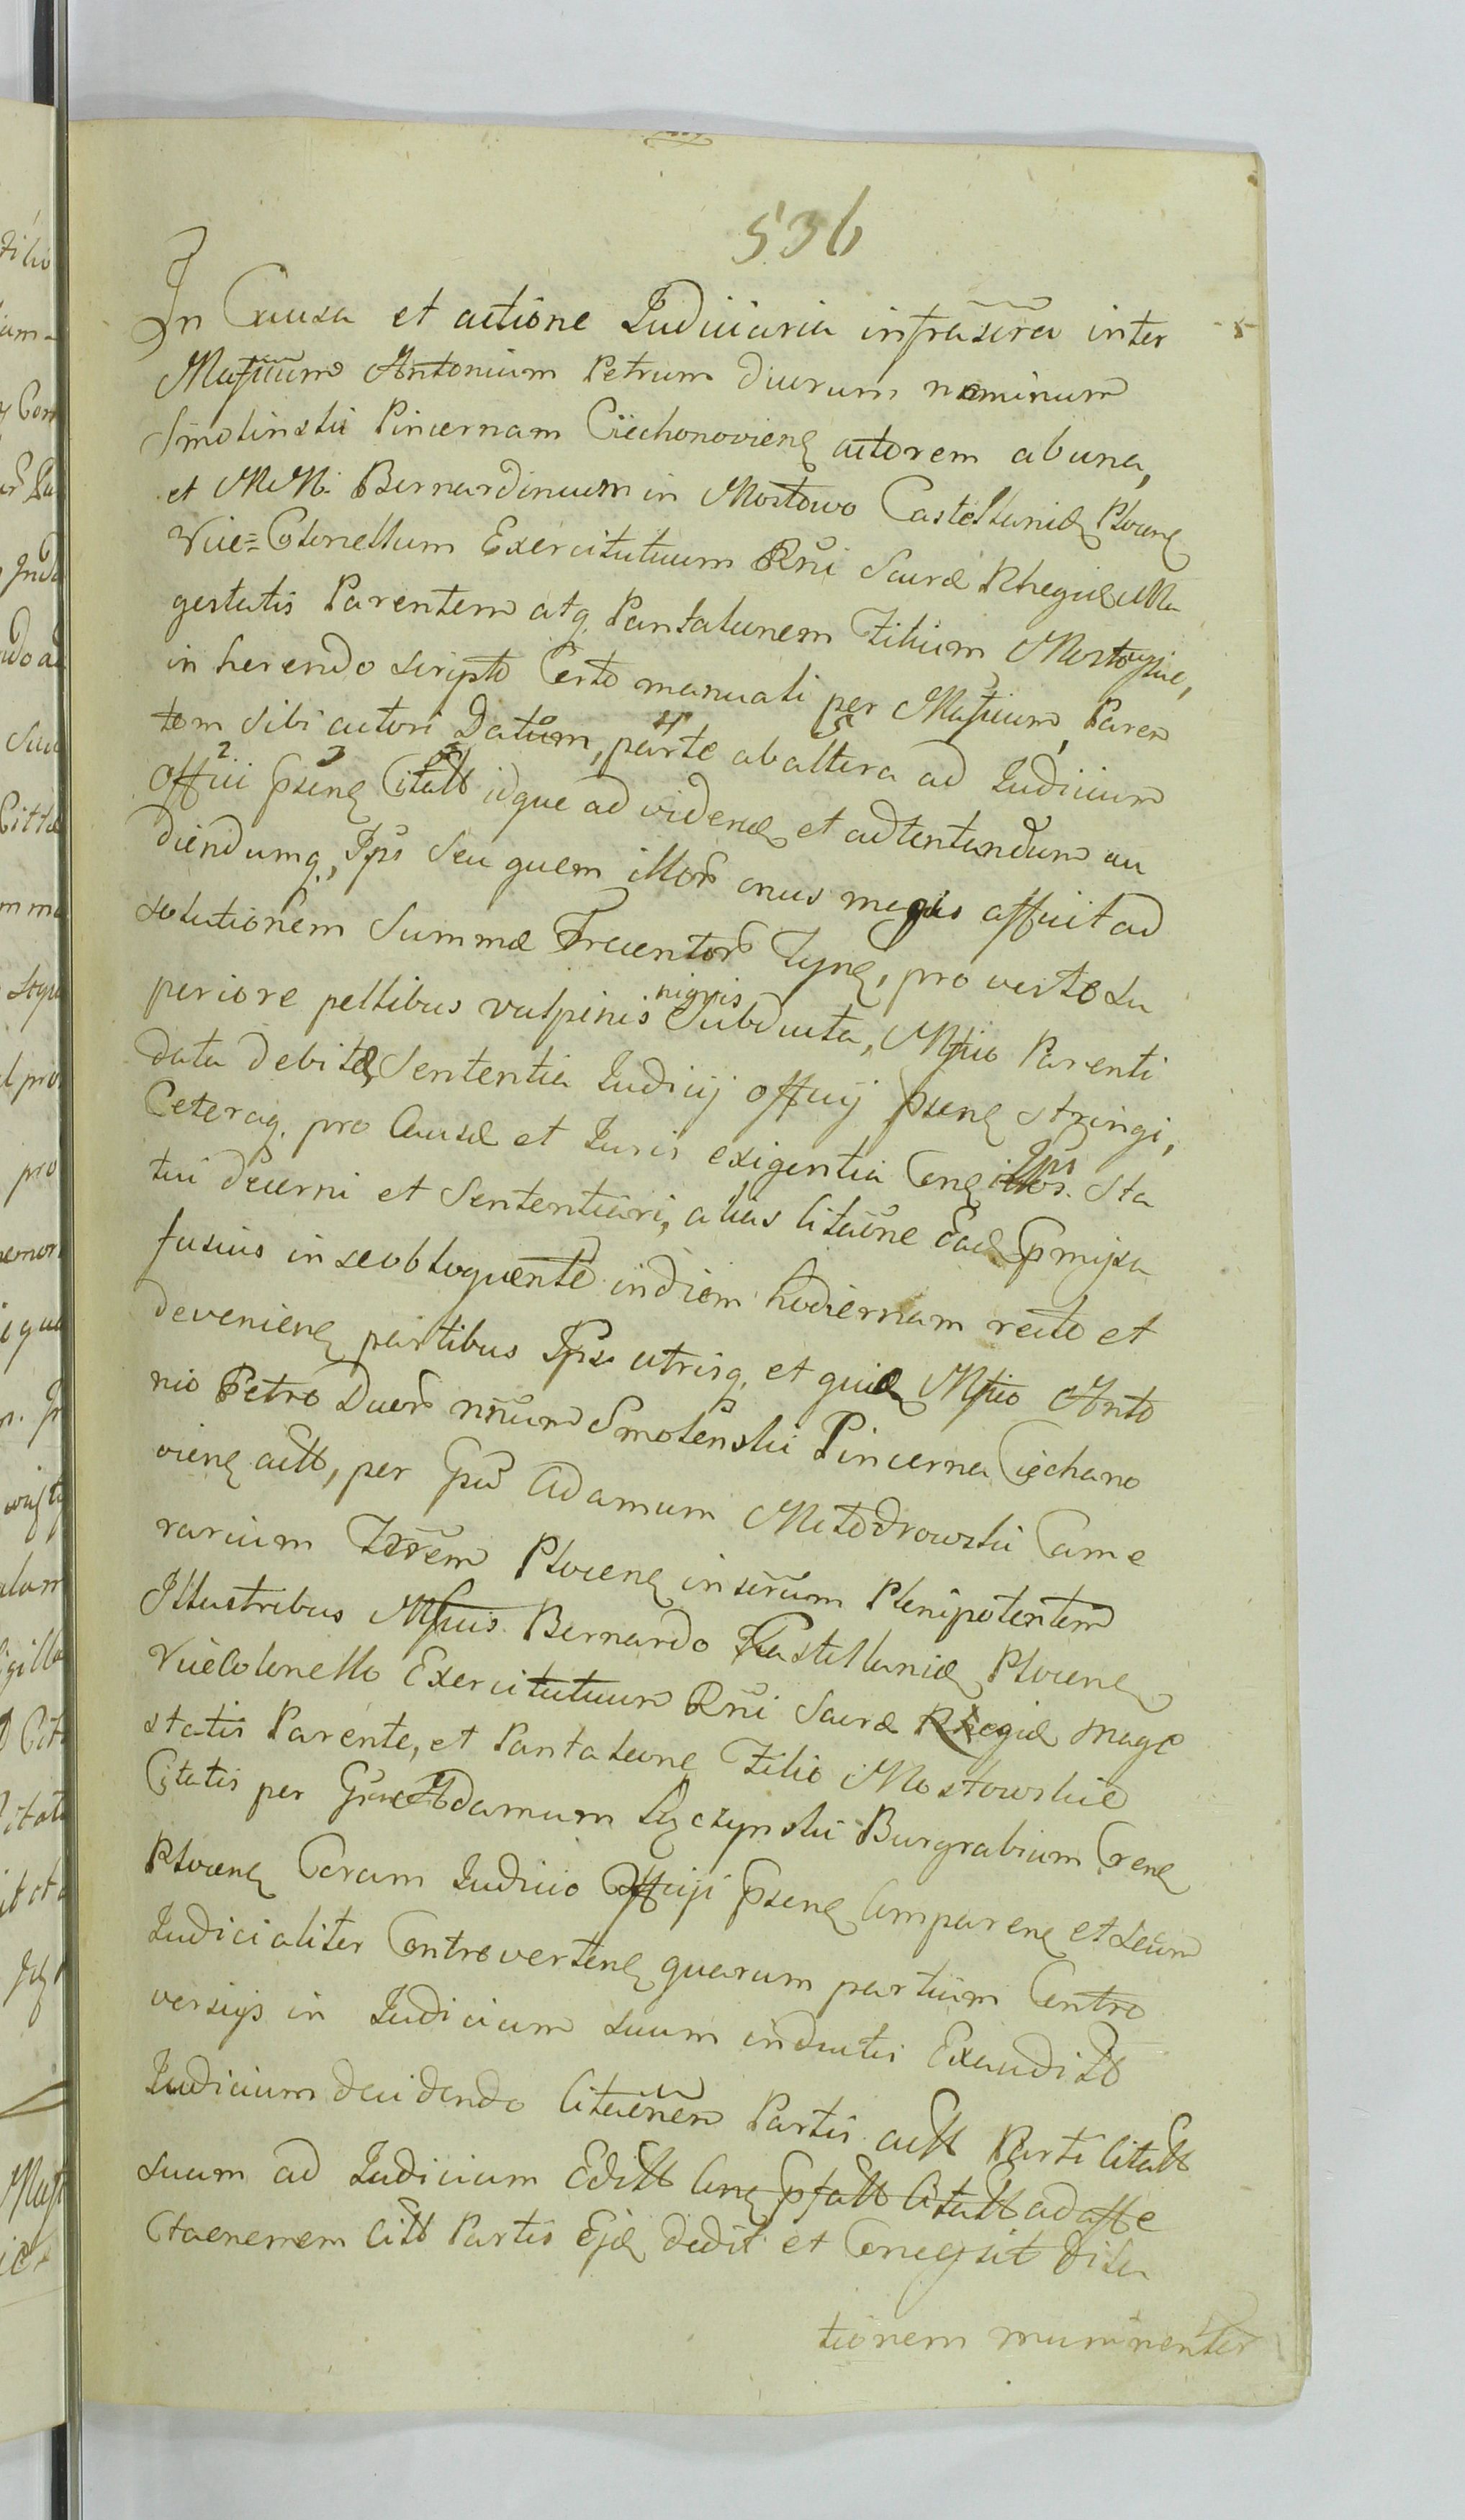 536
In Causa et actione Judiciaria infrascra inter
Mgficum Antonium Petrum duorum nominum
Smolinski Pincernam Ciechonovien actorem ab una,
et M. M. Bernardinum in Mostowo Castellanid Plocen
Vice=Colonellum Exercitutuum Rni Sacræ Rhegiæ Ma
gestatis Parentem atq Pantaleonem Filium Mostowskie,
in herendo scripto Certo manuali per Mgficum Paren
tem Sibi actori Datum, parte ab altera ad Judicium
Officii psens Citatt idque ad vidend et adtentandum au
diendumq, Ips Seu quem illor onus magis afficit ad
solutionem Summæ Trecentor Tynf, pro veste su
periore pellibus vulpinis nigris Subducta, Mfico Parenti
data debitæ, Sententia Judicij officij psens stringi,
Ceteraq. pro Causæ et Juris exigentia Cong Ips. Sta
tui decerni et Sententiari, alias Citaone Ead pmissa
fusius in se obloquente in diem hodiernam recte et
devenien partibus Ips utrisq, et quid Mfico Anto
nio Petro Duor nnum Smolenski Pincerna Ciechano
vien actt, per Gsum Adamum Mlodrowski Came
rarium Trrem Plocens inscrum Plenipotentem
Illustribus Mficis Bernardo Castellanid Plocens
Vicecolonello Exercitutuum Rni Sacræ Rhegiæ Mage
statis Parente, et Pantaleone Filio Mostowskie
Citatis per Gsum Adamum Lyczynski Burgrabium Cren
Plocens Coram Judicio Officiji psens Comparens et secum
Judicialiter Controvertens quarum partium Contro
versijs in Judicium suum inductis Exauditt
Judicium decidendo Citaonem Partis actt Parti Citatt
suum ad Judicium Editt Cong pfatt Citatt ad affe
ctaonemem Citt Partis Ejd dedit et Concessit Dila
tionem munimentor